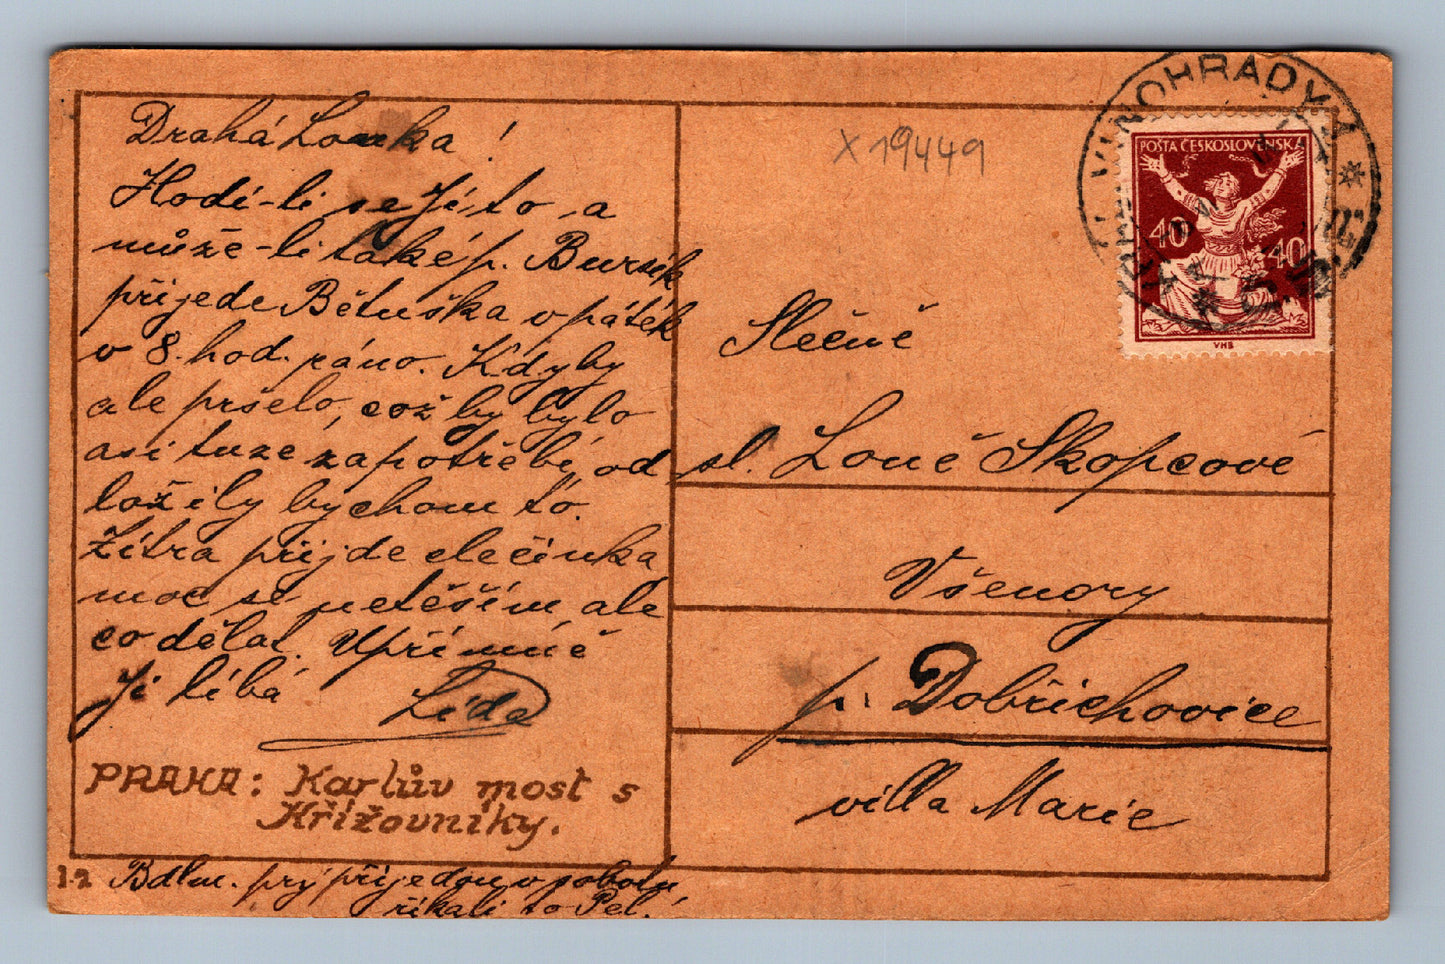 Drahá Lonka!
Hodí-li se Ji to, a
může-li také p. Bursík
přijede Bětuška v pátek
v 8. hod. ráno. Kdyby
ale pršelo, což by bylo
asi tuze zapotřebí, od
ložily bychom to.
Zítra přijde slečinka
moc se netěším ale
co dělat. Upřímně
Ji líbá Lída
PRAHA: Karlův most s
Křižovníky.
12 Bdlm. prý přijedou v sobotu
říkali to Pel.
X 19449
VINOHRADY 1
POŠTA ČESKOSLOVENSKÁ
40 40
VHB
Slečně
sl. Loně Skopcové
Všenory
p. Dobřichovice
villa Marie